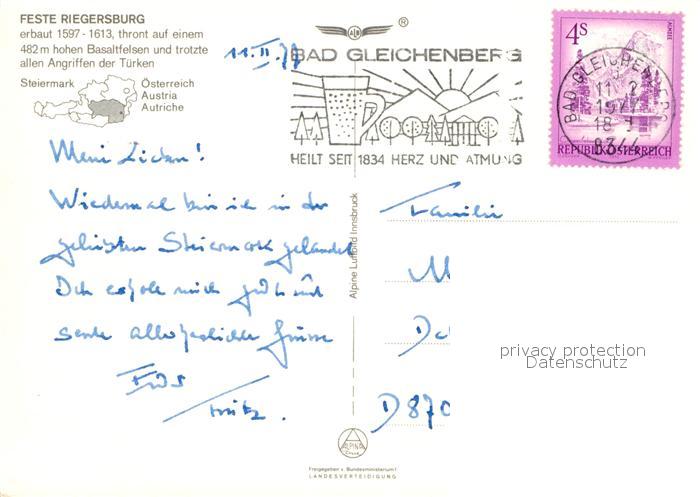 FESTE RIEGERSBURG
erbaut 1597 - 1613, thront auf einem
482 m hohen Basaltfelsen und trotzte
allen Angriffen der Türken
Steiermark
Österreich
Austria
Autriche
11. II. 77
®
BAD GLEICHENBERG
HEILT SEIT 1834 HERZ UND ATMUNG
4S
BAD GLEICHENBERG
11. 2.
1977
18
8344
REPUBLIK ÖSTERREICH
Meine Lieben!
Wiedermal bin ich in der
geliebten Steiermark gelandet
Ich erhole mich gut und
sende allerherzlichste Grüsse
Fritz.
Alpine Luftbild Innsbruck
Familie
M
D 870
privacy protection
Datenschutz
ALPINA
Freigegeben v. Bundesministerium f.
LANDESVERTEIDIGUNG